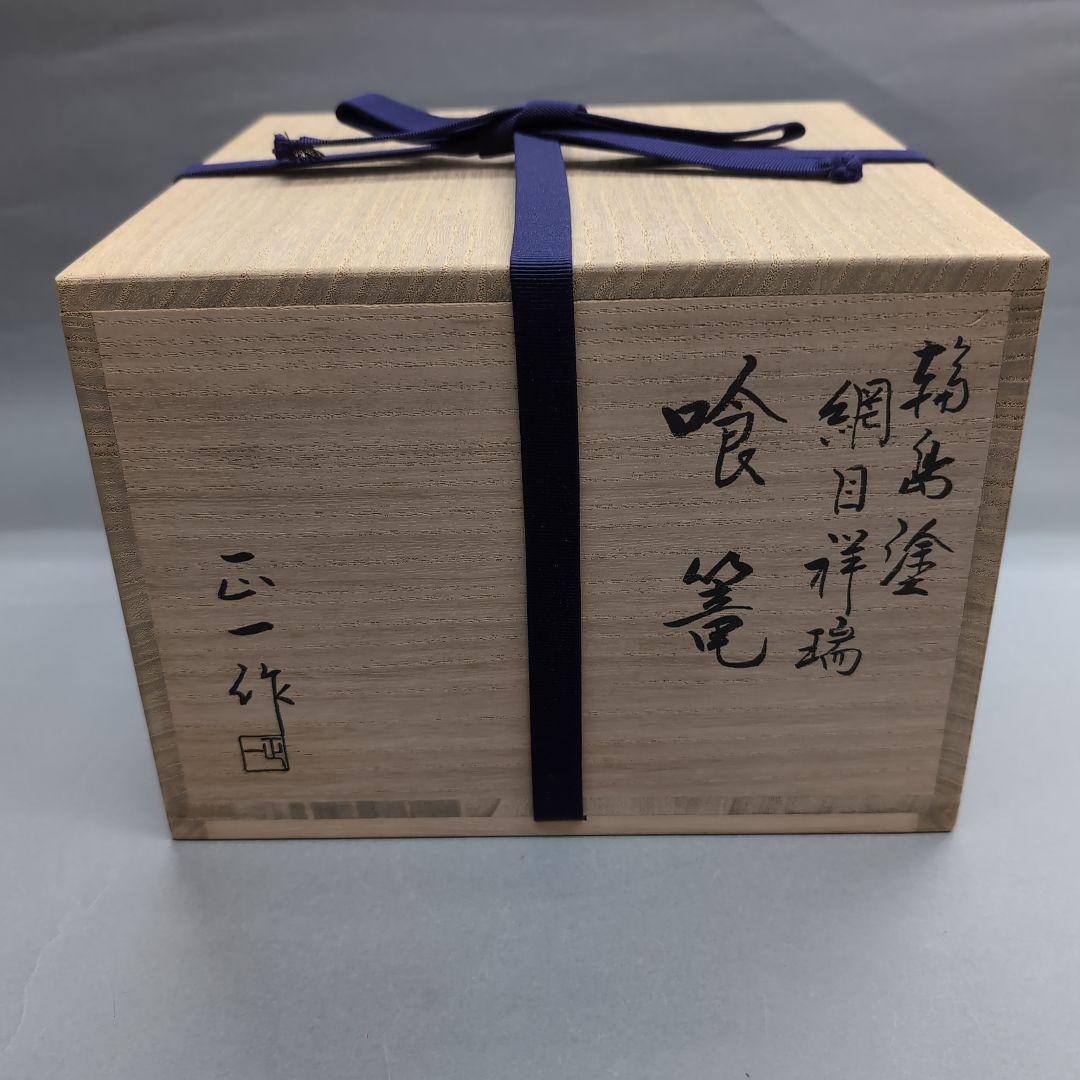 輪島塗
網目祥瑞
喰篭
正一作